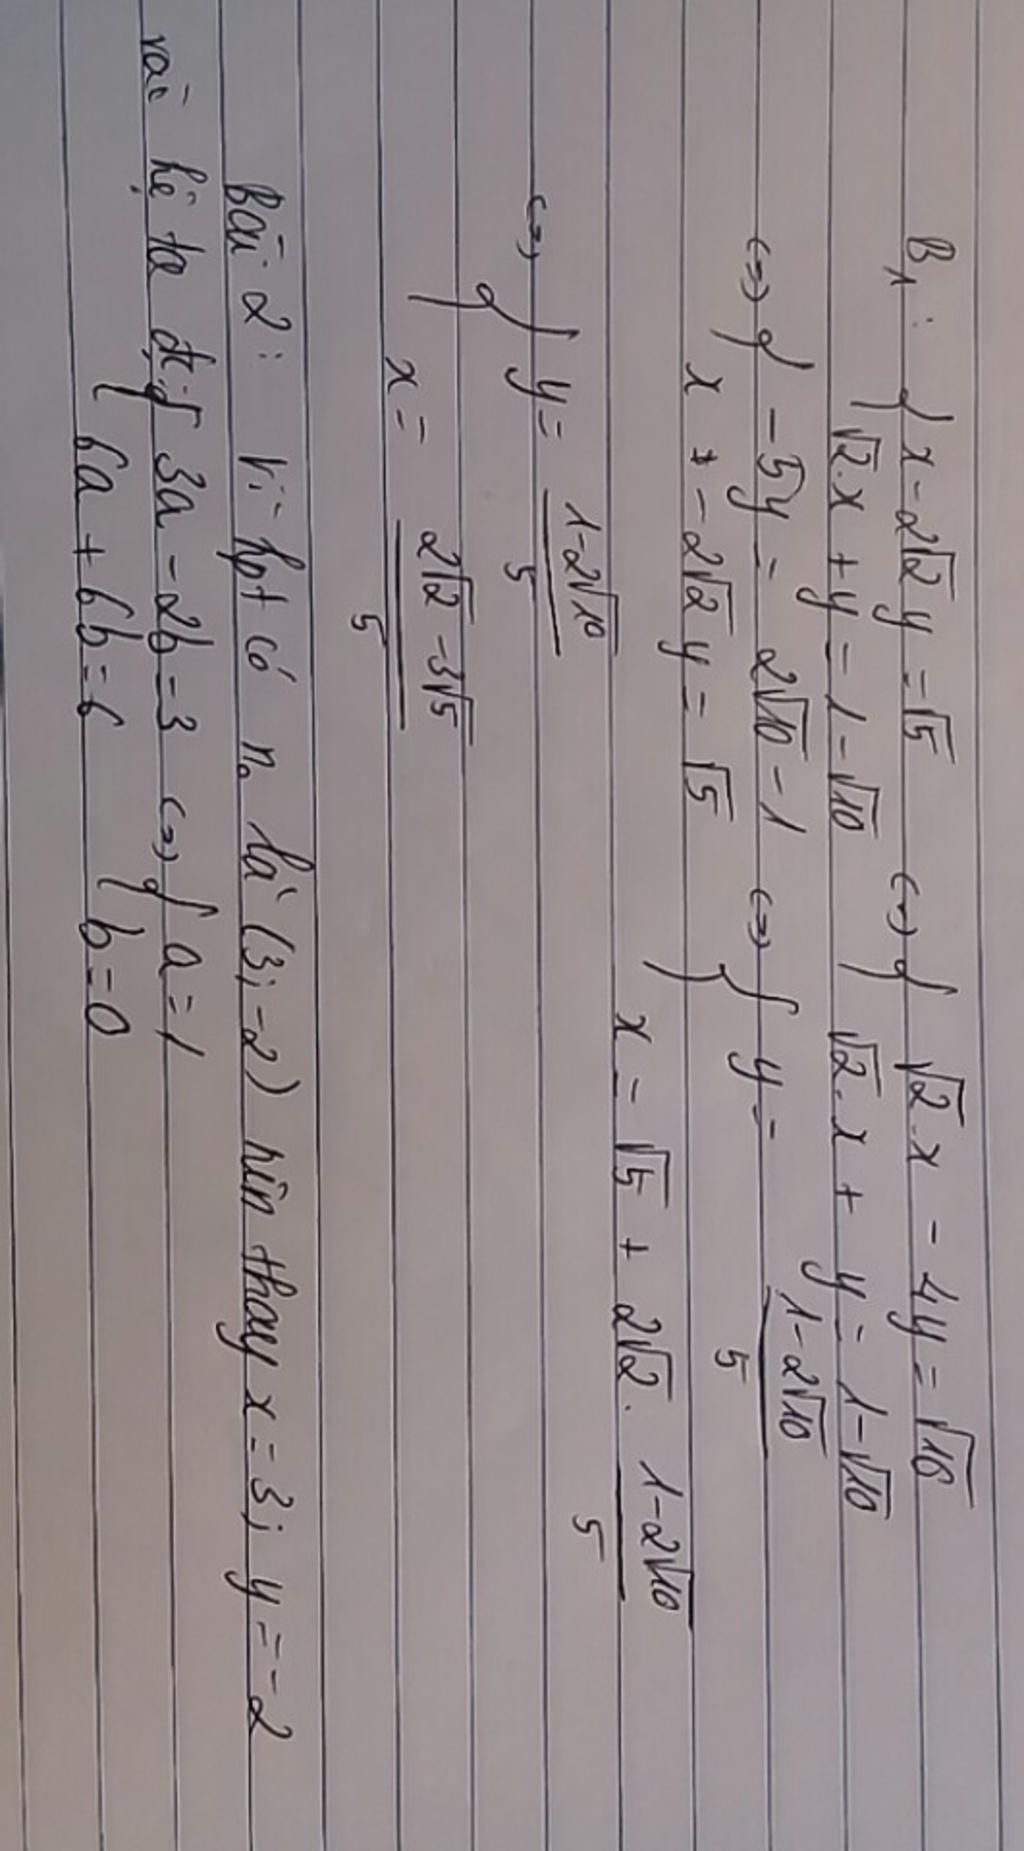 B1: { x - 2√2 y = √5 <=> { √2.x - 4y = √10
√2.x + y = 1 - √10 √2.x + y = 1 - √10
<=> { -5y = 2√10 - 1 <=> { y = (1-2√10)/5
x - 2√2 y = √5 x = √5 + 2√2. (1-2√10)/5
<=> { y = (1-2√10)/5
x = (2√2 - 3√5)/5
Bài 2: Vì hpt có no là (3; -2) nên thay x = 3; y = -2
vào hệ ta đc { 3a - 2b = 3 <=> { a = 1
6a + 6b = 6 b = 0